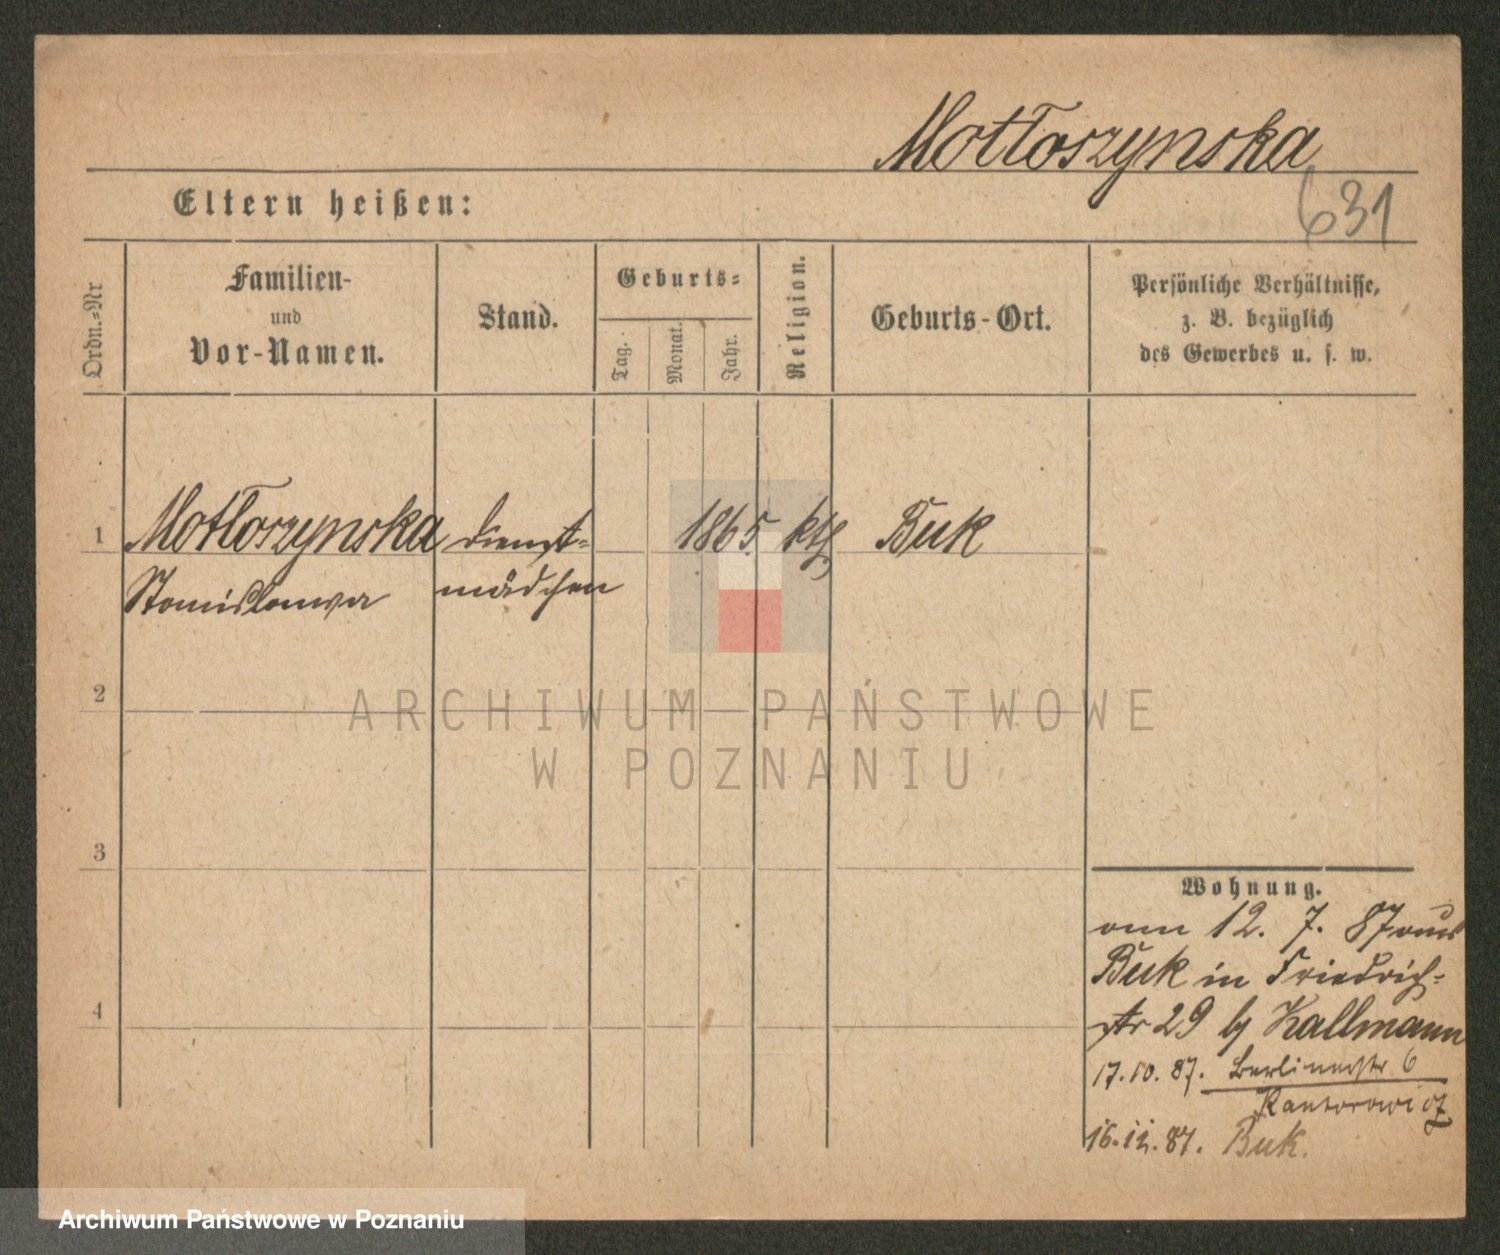 Motłoszynska
631
Eltern heißen:
Ordn.=Nr
Familien-
und
Vor-Namen.
Stand.
Geburts=
Tag.
Monat.
Jahr.
Religion.
Geburts-Ort.
Persönliche Verhältnisse,
z. B. bezüglich
des Gewerbes u. s. w.
1
Motłoszynska
Stanislawa
Dienst=
mädchen
1865
kth
Buk
2
3
4
Wohnung.
am 12. 7. 87 aus
Buk in Friedrich=
str 29 b/ Kallmann
17.10.87. Berlinerstr 6
Kantorowicz
16.12.87. Buk.
ARCHIWUM PAŃSTWOWE
W POZNANIU
Archiwum Państwowe w Poznaniu